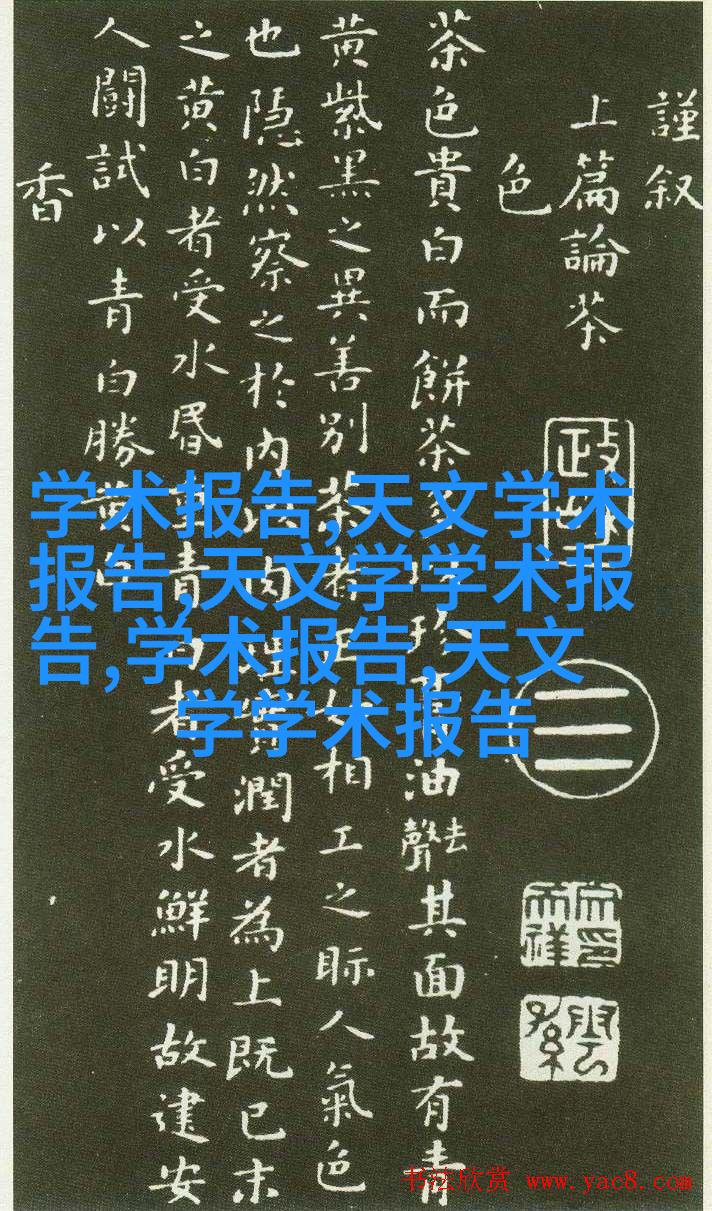 謹叙
上篇論茶
色
茶色貴白而餅茶多以珍膏油去聲其面故有青
黄紫黑之異善别茶者正如相工之眎人氣色
也隐然察之於内以肉理實潤者為上既已末
之黄白者受水昏重青白者受水鮮明故建安
人闘試以青白勝黄白
香
学术报告,天文学术
报告,天文学学术报
告,学术报告,天文
学学术报告
书法欣赏 www.yac8.com